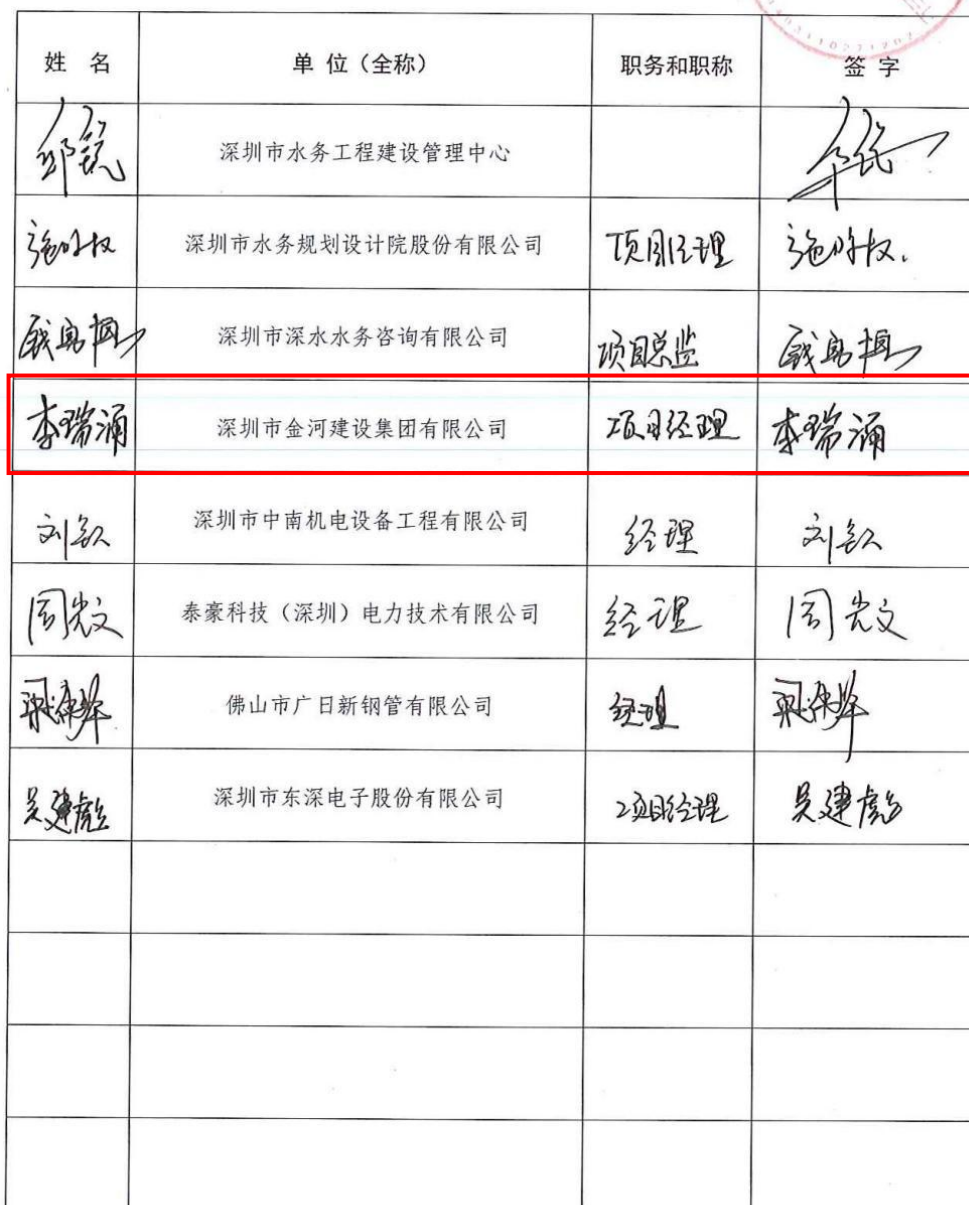 姓 名 单 位（全称） 职务和职称 签 字
深圳市水务工程建设管理中心
深圳市水务规划设计院股份有限公司 项目经理
深圳市深水水务咨询有限公司 项目总监
李瑞涌 深圳市金河建设集团有限公司 项目经理 李瑞涌
刘钦 深圳市中南机电设备工程有限公司 经理 刘钦
周光文 泰豪科技（深圳）电力技术有限公司 经理 周光文
佛山市广日新钢管有限公司 经理
吴建彪 深圳市东深电子股份有限公司 项目经理 吴建彪